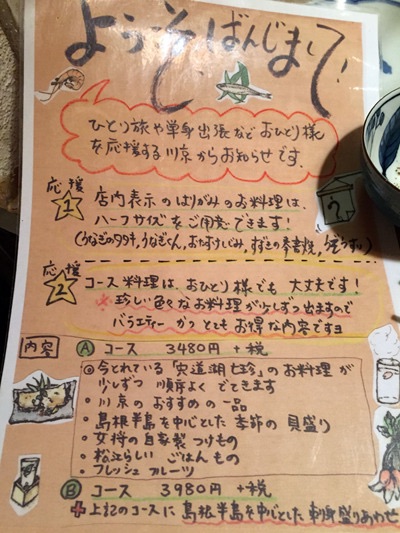 ようこそ ばんじまして!
ひとり旅や単身出張など おひとり様
を応援する川京からお知らせです。
応援
1
店内表示の はりがみのお料理は、
ハーフサイズをご用意できます!
(うなぎのタタキ、うなぎくん、おたすけしじみ、すずきの奉書焼、
応援
2
コース料理は、おひとり様でも 大丈夫です!
※珍しい色々なお料理が少しずつ出ますので
バラエティー かつ とても お得な内容ですヨ
内容
A コース 3480円 +税
◎今とれている「宍道湖七珍」のお料理が
少しずつ 順序よく でてきます
・川京の おすすめの一品
・島根半島を中心とした季節の貝盛り
・女将の自家製 つけもの
・松江らしい ごはんもの
・フレッシュ フルーツ
B コース 3980円 +税
+上記のコースに 島根半島を中心とした刺身盛りあわせ